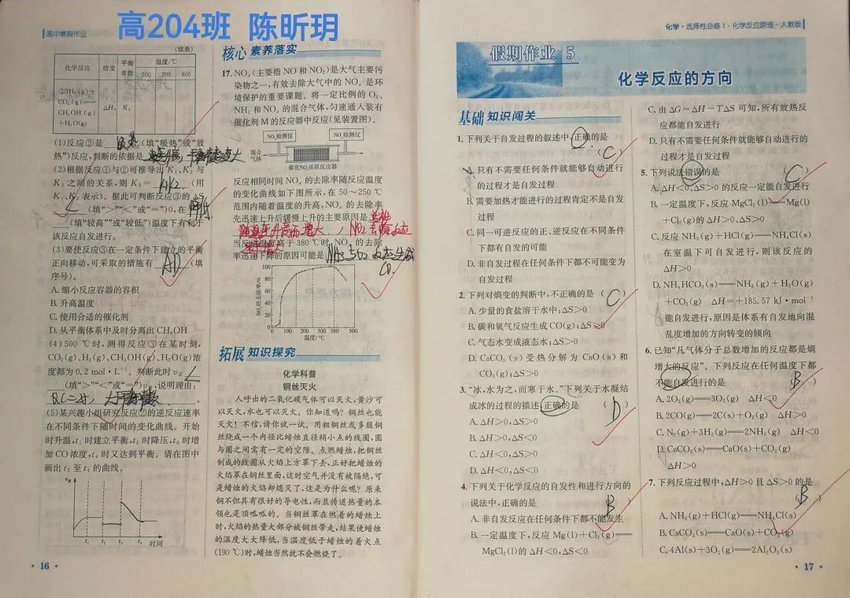 高204班 陈昕玥
高中寒段作业
(续表)
化学反应 焓变 平衡常数 温度/℃
500 700 800
③3H₂(g)+
CO₂(g)⇌
CH₃OH(g)
+H₂O(g)
ΔH₃ K₃
(1)反应②是 吸热 (填“吸热”或“放
热”)反应,判断的依据是
(2)根据反应①与②可推导出K₁、K₂与
K₃之间的关系,则K₃= K₁K₂ (用
K₁、K₂表示)。据此可判断反应③的
(填“>”“<”或“=”)0,在
(填“较高”“或”较低”)温度下有利于
该反应自发进行。
(3)要使反应③在一定条件下建立的平衡
正向移动,可采取的措施有 AD (填
序号)。
A. 缩小反应容器的容积
B. 升高温度
C. 使用合适的催化剂
D. 从平衡体系中及时分离出CH₃OH
(4)500 ℃时,测得反应③在某时刻,
CO₂(g)、H₂(g)、CH₃OH(g)、H₂O(g)浓
度都为0.2 mol·L⁻¹。判断此时v正 <
(填“>”“<”或“=”)v逆,说明理由:
(5)某兴趣小组研究反应①的逆反应速率
在不同条件下随时间的变化曲线。开始
时升温,t₁时建立平衡,t₂时降压,t₃时增
加CO浓度,t₄时又达到平衡。请在图中
画出t₂至t₄的曲线。
v逆
t₁ t₂ t₃ t₄ 时间
· 16 ·
核心 素养落实
17. NOₓ(主要指NO和NO₂)是大气主要污
染物之一,有效去除大气中的NOₓ是环
境保护的重要课题。将一定比例的O₂、
NH₃和NOₓ的混合气体,匀速通入装有
催化剂M的反应器中反应(见装置图)。
NOₓ检测仪 NOₓ检测仪
混合气体
催化NOₓ还原反应器
反应相同时间NOₓ的去除率随反应温度
的变化曲线如下图所示,在50～250 ℃
范围内随着温度的升高,NOₓ的去除率
先迅速上升后缓慢上升的主要原因是
当反应温度高于380 ℃时,NOₓ的去除
率迅速下降的原因可能是
NOₓ的去除率/%
0 100 200 300 400 500
温度/℃
拓展 知识探究
化学科普
铜丝灭火
人呼出的二氧化碳气体可以灭火,黄沙可
以灭火,水也可以灭火。你知道吗?铜丝也能
灭火!不信,请你试一试。用粗铜丝或多股铜
丝绕成一个内径比蜡烛直径稍小点的线圈,圈
与圈之间需有一定的空隙。点燃蜡烛,把铜丝
制成的线圈从火焰上方罩下去,正好把蜡烛的
火焰罩在铜丝里面,这时空气并没有被隔绝,可
是蜡烛的火焰却熄灭了,这是为什么呢?原来
铜不但具有很好的导电性,而且传递热量的本
领也是顶呱呱的。当铜丝罩在燃着的蜡烛上
时,火焰的热量大部分被铜丝带走,结果使蜡烛
的温度大大降低,当温度低于蜡烛的着火点
(190 ℃)时,蜡烛当然就不会燃烧了。
化学·选择性必修1·化学反应原理·人教版
假期作业 5
化学反应的方向
基础 知识闯关
1. 下列关于自发过程的叙述中,正确的是
( C )
A. 只有不需要任何条件就能够自动进行
的过程才是自发过程
B. 需要加热才能进行的过程肯定不是自发
过程
C. 同一可逆反应的正、逆反应在不同条件
下都有自发的可能
D. 非自发过程在任何条件下都不可能变为
自发过程
2. 下列对熵变的判断中,不正确的是 ( C )
A. 少量的食盐溶于水中:ΔS>0
B. 碳和氧气反应生成CO(g):ΔS>0
C. 气态水变成液态水:ΔS>0
D. CaCO₃(s)受热分解为CaO(s)和
CO₂(g):ΔS>0
3. “冰,水为之,而寒于水。”下列关于水凝结
成冰的过程的描述,正确的是 ( D )
A. ΔH>0,ΔS>0
B. ΔH>0,ΔS<0
C. ΔH<0,ΔS>0
D. ΔH<0,ΔS<0
4. 下列关于化学反应的自发性和进行方向的
说法中,正确的是 ( B )
A. 非自发反应在任何条件下都不能发生
B. 一定温度下,反应Mg(l)+Cl₂(g)══
MgCl₂(l)的ΔH<0,ΔS<0
C. 由ΔG=ΔH−TΔS可知,所有放热反
应都能自发进行
D. 只有不需要任何条件就能够自动进行的
过程才是自发过程
5. 下列说法错误的是
A. ΔH<0、ΔS>0的反应一定能自发进行
B. 一定温度下,反应MgCl₂(l)══Mg(l)
+Cl₂(g)的ΔH>0、ΔS>0
C. 反应NH₃(g)+HCl(g)══NH₄Cl(s)
在室温下可自发进行,则该反应的
ΔH>0
D. NH₄HCO₃(s)══NH₃(g)+H₂O(g)
+CO₂(g) ΔH=+185.57 kJ·mol⁻¹
能自发进行,原因是体系有自发地向混
乱度增加的方向转变的倾向
6. 已知“凡气体分子总数增加的反应都是熵
增大的反应”。下列反应在任何温度下都
不能自发进行的是 ( B )
A. 2O₃(g)══3O₂(g) ΔH<0
B. 2CO(g)══2C(s)+O₂(g) ΔH>0
C. N₂(g)+3H₂(g)══2NH₃(g) ΔH<0
D. CaCO₃(s)══CaO(s)+CO₂(g)
ΔH>0
7. 下列反应过程中,ΔH>0且ΔS>0的是
( B )
A. NH₃(g)+HCl(g)══NH₄Cl(s)
B. CaCO₃(s)══CaO(s)+CO₂(g)
C. 4Al(s)+3O₂(g)══2Al₂O₃(s)
· 17 ·